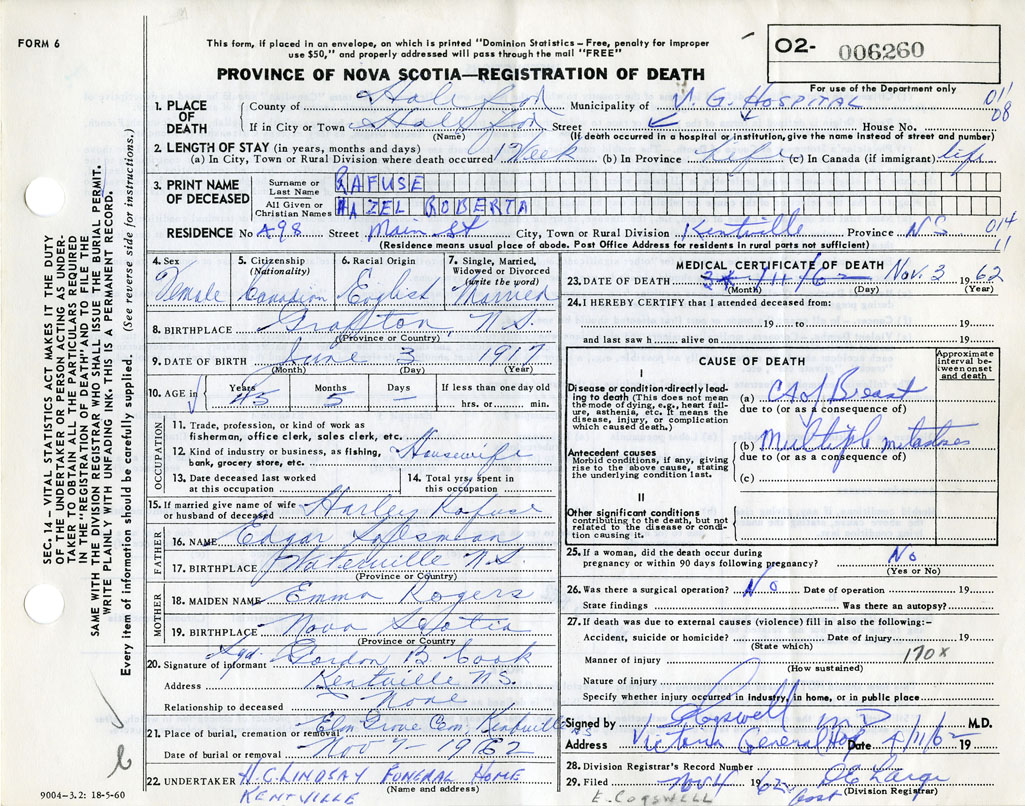 FORM 6
This form, if placed in an envelope, on which is printed "Dominion Statistics - Free, penalty for improper
use $50," and properly addressed will pass through the mail "FREE"
O2- 006260
PROVINCE OF NOVA SCOTIA—REGISTRATION OF DEATH
For use of the Department only
1. PLACE OF DEATH
County of Halifax Municipality of V. G. HOSPITAL 011
08
If in City or Town Halifax Street House No.
(Name) (If death occurred in a hospital or institution, give the name instead of street and number)
2. LENGTH OF STAY (in years, months and days)
(a) In City, Town or Rural Division where death occurred 1 Week (b) In Province Life (c) In Canada (if immigrant) life
3. PRINT NAME OF DECEASED
Surname or Last Name RAFUSE
All Given or Christian Names HAZEL ROBERTA
RESIDENCE No 498 Street Main St City, Town or Rural Division Kentville Province NS 014
11
(Residence means usual place of abode. Post Office Address for residents in rural parts not sufficient)
4. Sex Female
5. Citizenship (Nationality) Canadian
6. Racial Origin English
7. Single, Married, Widowed or Divorced (write the word) Married
8. BIRTHPLACE Grafton, N.S.
(Province or Country)
9. DATE OF BIRTH June 3 1917
(Month) (Day) (Year)
10. AGE in Years 45 Months 5 Days – If less than one day old
hrs. or min.
OCCUPATION
11. Trade, profession, or kind of work as
fisherman, office clerk, sales clerk, etc.
12. Kind of industry or business, as fishing,
bank, grocery store, etc. Housewife
13. Date deceased last worked
at this occupation
14. Total yrs. spent in
this occupation
15. If married give name of wife
or husband of deceased Harley Rafuse
FATHER
16. NAME Edgar
17. BIRTHPLACE Waterville N.S.
(Province or Country)
MOTHER
18. MAIDEN NAME Emma Rogers
19. BIRTHPLACE Nova Scotia
(Province or Country)
20. Signature of informant Sgd. Gordon B Cook
Address Kentville NS.
Relationship to deceased None
21. Place of burial, cremation or removal Elm Grove Cem Kentville NS
Date of burial or removal Nov 7 - 1962
22. UNDERTAKER H.C. LINDSAY FUNERAL HOME
(Name and address)
KENTVILLE
MEDICAL CERTIFICATE OF DEATH
23. DATE OF DEATH /11/62 Nov. 3 1962
(Month) (Day) (Year)
24. I HEREBY CERTIFY that I attended deceased from:
19 to 19
and last saw h alive on 19
CAUSE OF DEATH
Approximate interval between onset and death
I
Disease or condition directly leading to death (This does not mean
the mode of dying, e.g., heart failure,
asthenia, etc. It means the
disease, injury, or complication
which caused death.)
(a) CA of Breast
due to (or as a consequence of)
Antecedent causes
Morbid conditions, if any, giving
rise to the above cause, stating
the underlying condition last.
(b) Multiple metastases
due to (or as a consequence of)
(c)
II
Other significant conditions
contributing to the death, but not
related to the disease or condition
causing it.
25. If a woman, did the death occur during
pregnancy or within 90 days following pregnancy? No
(Yes or No)
26. Was there a surgical operation? No Date of operation 19
State findings Was there an autopsy?
27. If death was due to external causes (violence) fill in also the following:-
Accident, suicide or homicide? Date of injury 19
(State which)
Manner of injury 170X
(How sustained)
Nature of injury
Specify whether injury occurred in industry, in home, or in public place
Signed by Cogswell MD M.D.
Address Victoria General Hosp Date 4/11/62 19
28. Division Registrar's Record Number
29. Filed Nov 4 1962 D E Large
(Division Registrar)
E. COGSWELL
SEC. 14 - VITAL STATISTICS ACT MAKES IT THE DUTY
OF THE UNDERTAKER OR PERSON ACTING AS UNDERTAKER
TO OBTAIN ALL THE PARTICULARS REQUIRED
IN THE "REGISTRATION OF DEATH" AND TO FILE THE
SAME WITH THE DIVISION REGISTRAR WHO SHALL ISSUE THE BURIAL PERMIT.
WRITE PLAINLY WITH UNFADING INK. THIS IS A PERMANENT RECORD.
Every item of information should be carefully supplied. (See reverse side for instructions.)
9004-3.2: 18-5-60